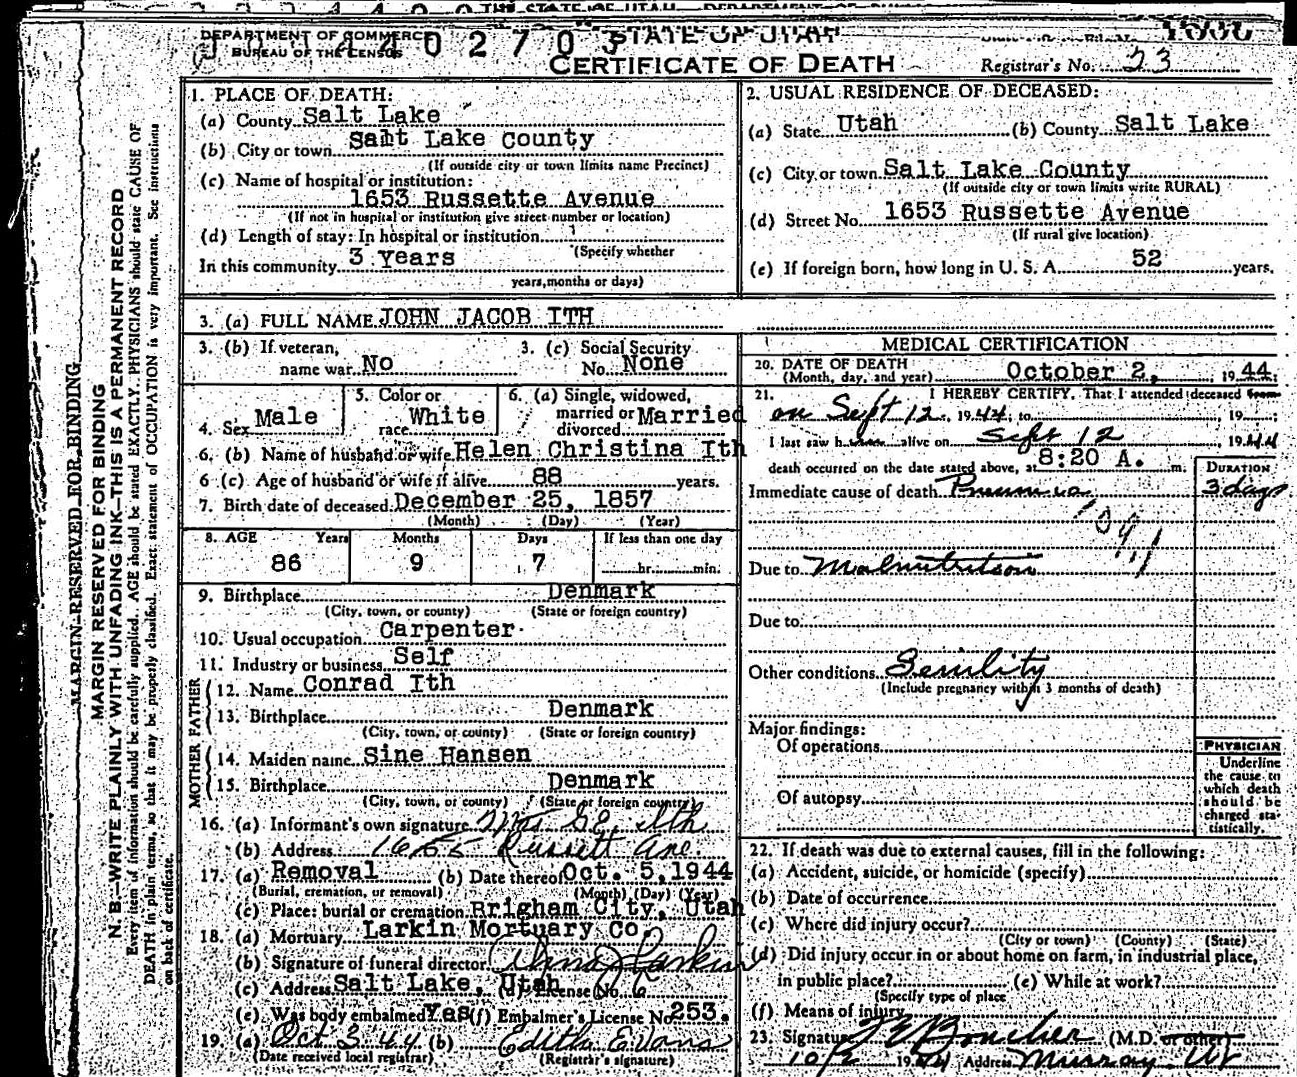 THE STATE OF UTAH - DEPARTMENT OF
DEPARTMENT OF COMMERCE
BUREAU OF THE CENSUS
STATE OF UTAH
CERTIFICATE OF DEATH
Registrar's No. 23
MARGIN RESERVED FOR BINDING
MARGIN RESERVED FOR BINDING
N. B.—WRITE PLAINLY WITH UNFADING INK—THIS IS A PERMANENT RECORD
Every item of information should be carefully supplied. AGE should be stated EXACTLY. PHYSICIANS should state CAUSE OF
DEATH in plain terms, so that it may be properly classified. Exact statement of OCCUPATION is very important. See instructions
on back of certificate.
1. PLACE OF DEATH:
(a) County Salt Lake
Samt Lake County
(b) City or town
(If outside city or town limits name Precinct)
(c) Name of hospital or institution:
1653 Russette Avenue
(If not in hospital or institution give street number or location)
(d) Length of stay: In hospital or institution
(Specify whether
In this community 3 Years
years, months or days)
2. USUAL RESIDENCE OF DECEASED:
(a) State Utah (b) County Salt Lake
(c) City or town Salt Lake County
(If outside city or town limits write RURAL)
(d) Street No. 1653 Russette Avenue
(If rural give location)
(e) If foreign born, how long in U. S. A. 52 years.
3. (a) FULL NAME JOHN JACOB ITH
3. (b) If veteran, 3. (c) Social Security
name war No No. None
4. Sex Male
5. Color or
race White
6. (a) Single, widowed,
married or Married
divorced
6. (b) Name of husband or wife Helen Christina Ith
6 (c) Age of husband or wife if alive 88 years.
7. Birth date of deceased December 25, 1857
(Month) (Day) (Year)
8. AGE Years Months Days If less than one day
86 9 7 hr. min.
9. Birthplace Denmark
(City, town, or county) (State or foreign country)
10. Usual occupation Carpenter
11. Industry or business Self
FATHER
12. Name Conrad Ith
13. Birthplace Denmark
(City, town, or county) (State or foreign country)
MOTHER
14. Maiden name Sine Hansen
15. Birthplace Denmark
(City, town, or county) (State or foreign country)
16. (a) Informant's own signature Mrs G E Ith
(b) Address Russett Ave
17. (a) Removal (b) Date thereof Oct. 5, 1944
(Burial, cremation, or removal) (Month) (Day) (Year)
(c) Place: burial or cremation Brigham City, Utah
18. (a) Mortuary Larkin Mortuary Co.
(b) Signature of funeral director Larkin
(c) Address Salt Lake, Utah (d) License No. 6
(e) Was body embalmed Yes (f) Embalmer's License No 253.
19. (a) Oct 3 44 (b) Editha Evans
(Date received local registrar) (Registrar's signature)
MEDICAL CERTIFICATION
20. DATE OF DEATH
(Month, day, and year) October 2, 1944
21. I HEREBY CERTIFY, That I attended deceased from
on Sept 12, 1944, to 19
I last saw h alive on Sept 12, 1944
death occurred on the date stated above, at 8:20 A. m.
DURATION
Immediate cause of death Pneumonia 3 days
109.1
Due to Malnutrition
Due to
Other conditions Senility
(Include pregnancy within 3 months of death)
Major findings:
Of operations
Of autopsy
PHYSICIAN
Underline
the cause to
which death
should be
charged sta-
tistically.
22. If death was due to external causes, fill in the following:
(a) Accident, suicide, or homicide (specify)
(b) Date of occurrence
(c) Where did injury occur?
(City or town) (County) (State)
(d) Did injury occur in or about home on farm, in industrial place,
in public place? (e) While at work?
(Specify type of place
(f) Means of injury
23. Signature Boucher (M.D. or other)
10/2 1944 Address Murray, Ut